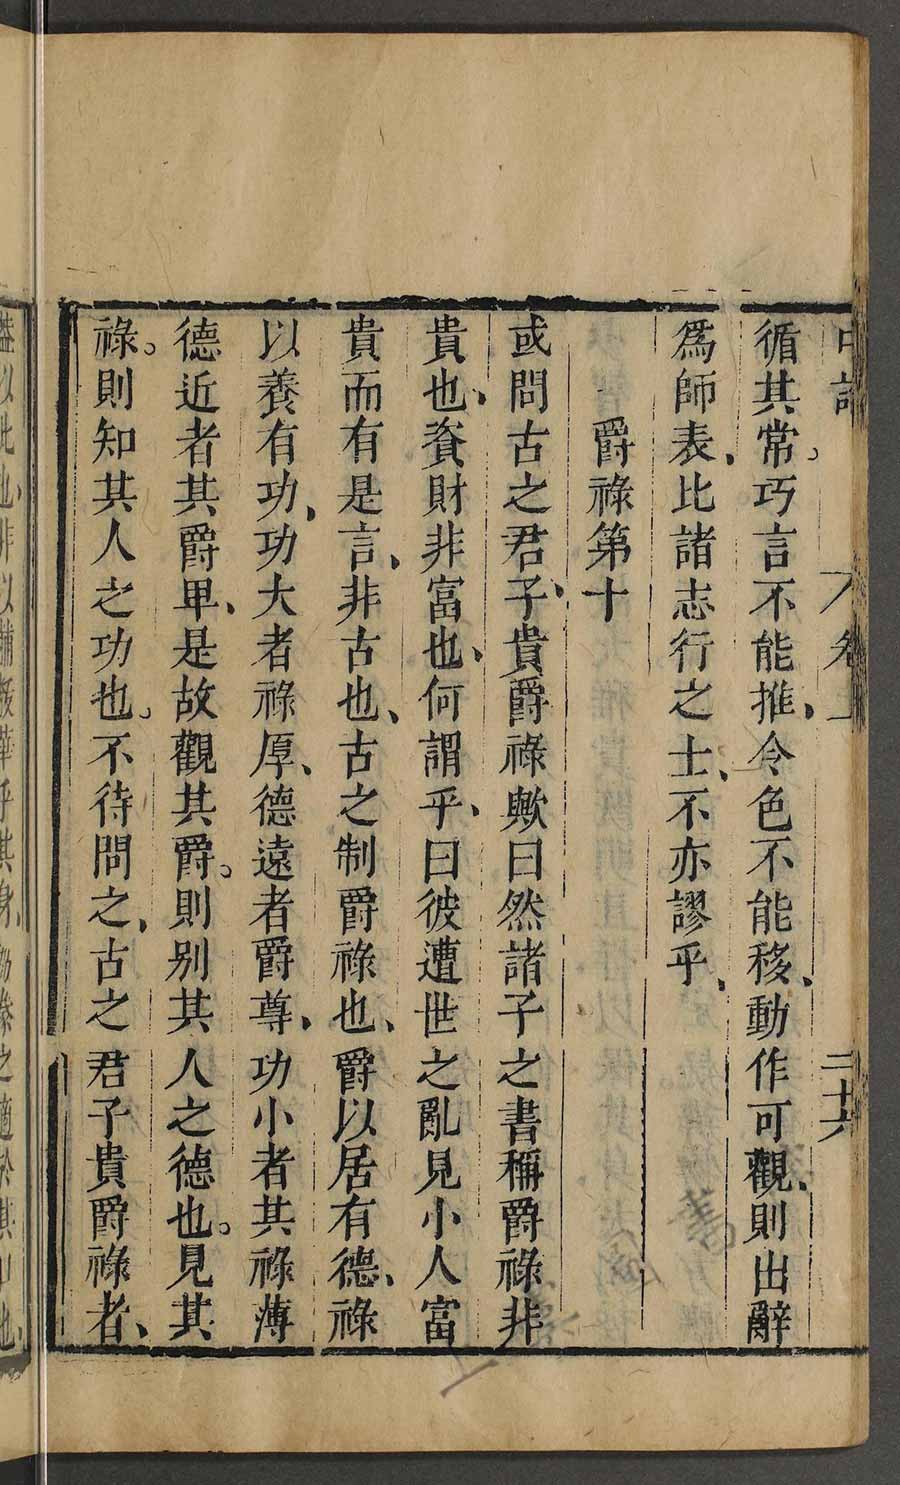 中論 卷上 二十六
循其常。巧言不能推、令色不能移、動作可觀、則出辭
爲師表、比諸志行之士、不亦謬乎、
爵祿第十
或問古之君子、貴爵祿歟曰然諸子之書稱爵祿非
貴也、資財非富也、何謂乎、曰彼遭世之亂見小人富
貴而有是言、非古也、古之制爵祿也、爵以居有德、祿
以養有功、功大者祿厚、德遠者爵尊、功小者其祿薄
德近者其爵卑、是故觀其爵。則别其人之德也。見其
祿。則知其人之功也。不待問之、古之君子貴爵祿者、
蓋以此也、非以黼黻華乎其身、芻豢之適於其口也、